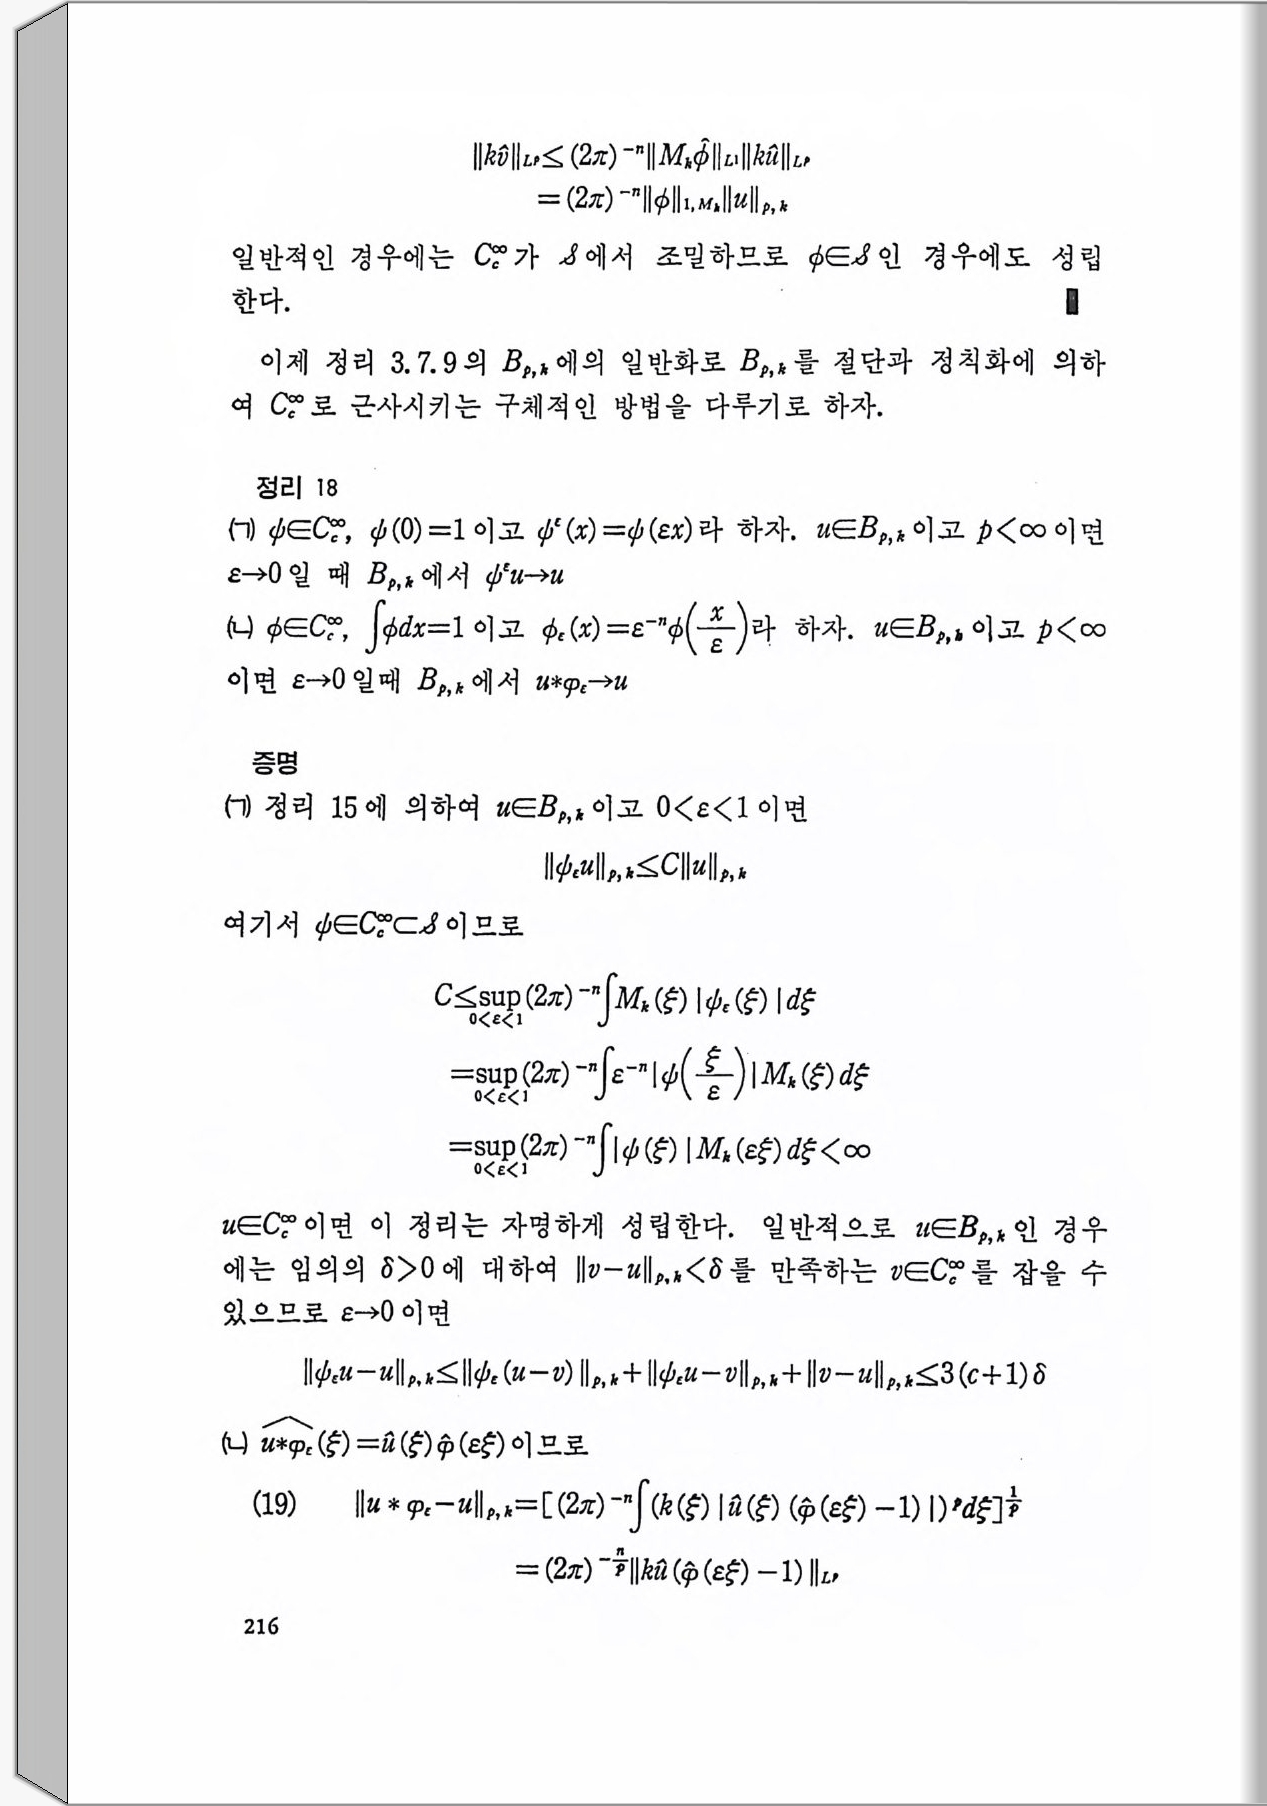 ‖kv̂‖_{L^p}≤(2π)^{-n}‖M_kφ̂‖_{L^1}‖kû‖_{L^p}
=(2π)^{-n}‖φ‖_{1,M_k}‖u‖_{p,k}
일반적인 경우에는 C_c^∞가 𝒮에서 조밀하므로 φ∈𝒮인 경우에도 성립
한다. ▮
이제 정리 3.7.9의 B_{p,k}에의 일반화로 B_{p,k}를 절단과 정칙화에 의하
여 C_c^∞로 근사시키는 구체적인 방법을 다루기로 하자.
정리 18
(ㄱ) ψ∈C_c^∞, ψ(0)=1이고 ψ^ε(x)=ψ(εx)라 하자. u∈B_{p,k}이고 p<∞이면
ε→0일 때 B_{p,k}에서 ψ^εu→u
(ㄴ) φ∈C_c^∞, ∫φdx=1이고 φ_ε(x)=ε^{-n}φ(x/ε)라 하자. u∈B_{p,k}이고 p<∞
이면 ε→0일때 B_{p,k}에서 u*φ_ε→u
증명
(ㄱ) 정리 15에 의하여 u∈B_{p,k}이고 0<ε<1이면
‖ψ_εu‖_{p,k}≤C‖u‖_{p,k}
여기서 ψ∈C_c^∞⊂𝒮이므로
C≤sup_{0<ε<1}(2π)^{-n}∫M_k(ξ)|ψ_ε(ξ)|dξ
=sup_{0<ε<1}(2π)^{-n}∫ε^{-n}|ψ(ξ/ε)|M_k(ξ)dξ
=sup_{0<ε<1}(2π)^{-n}∫|ψ(ξ)|M_k(εξ)dξ<∞
u∈C_c^∞이면 이 정리는 자명하게 성립한다. 일반적으로 u∈B_{p,k}인 경우
에는 임의의 δ>0에 대하여 ‖v-u‖_{p,k}<δ를 만족하는 v∈C_c^∞를 잡을 수
있으므로 ε→0이면
‖ψ_εu-u‖_{p,k}≤‖ψ_ε(u-v)‖_{p,k}+‖ψ_εu-v‖_{p,k}+‖v-u‖_{p,k}≤3(c+1)δ
(ㄴ) \widehat{u*φ_ε}(ξ)=û(ξ)φ̂(εξ)이므로
(19) ‖u*φ_ε-u‖_{p,k}=[(2π)^{-n}∫(k(ξ)|û(ξ)(φ̂(εξ)-1)|)^pdξ]^{1/p}
=(2π)^{-n/p}‖kû(φ̂(εξ)-1)‖_{L^p}
216